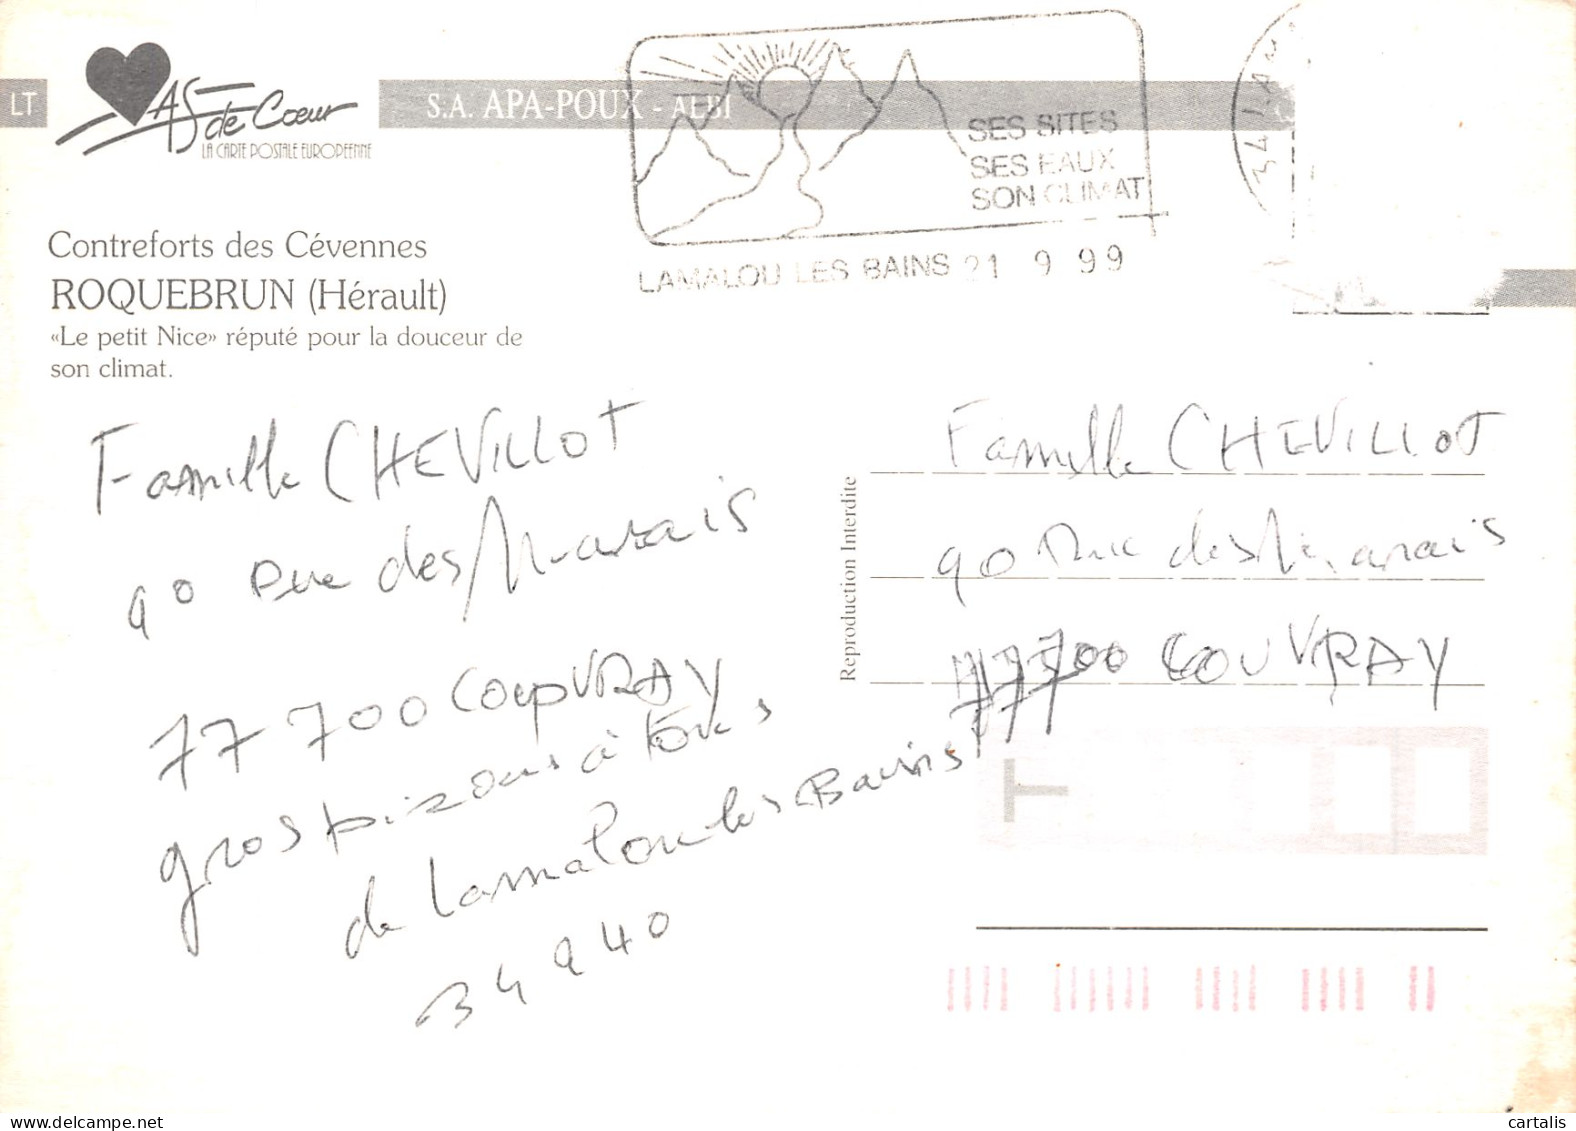 LT
As de Cœur
LA CARTE POSTALE EUROPEENNE
S.A. APA-POUX - ALBI
SES SITES
SES EAUX
SON CLIMAT
LAMALOU LES BAINS 21 9 99
34 LAM
Contreforts des Cévennes
ROQUEBRUN (Hérault)
«Le petit Nice» réputé pour la douceur de
son climat.
Famille CHEVILLOT
90 Rue des Marais
77700 COUPVRAY
gros bizous à tous
de Lamalou les Bains
34240
Reproduction Interdite
Famille CHEVILLOT
90 Rue des Marais
77700 COUVRAY
T
cartalis